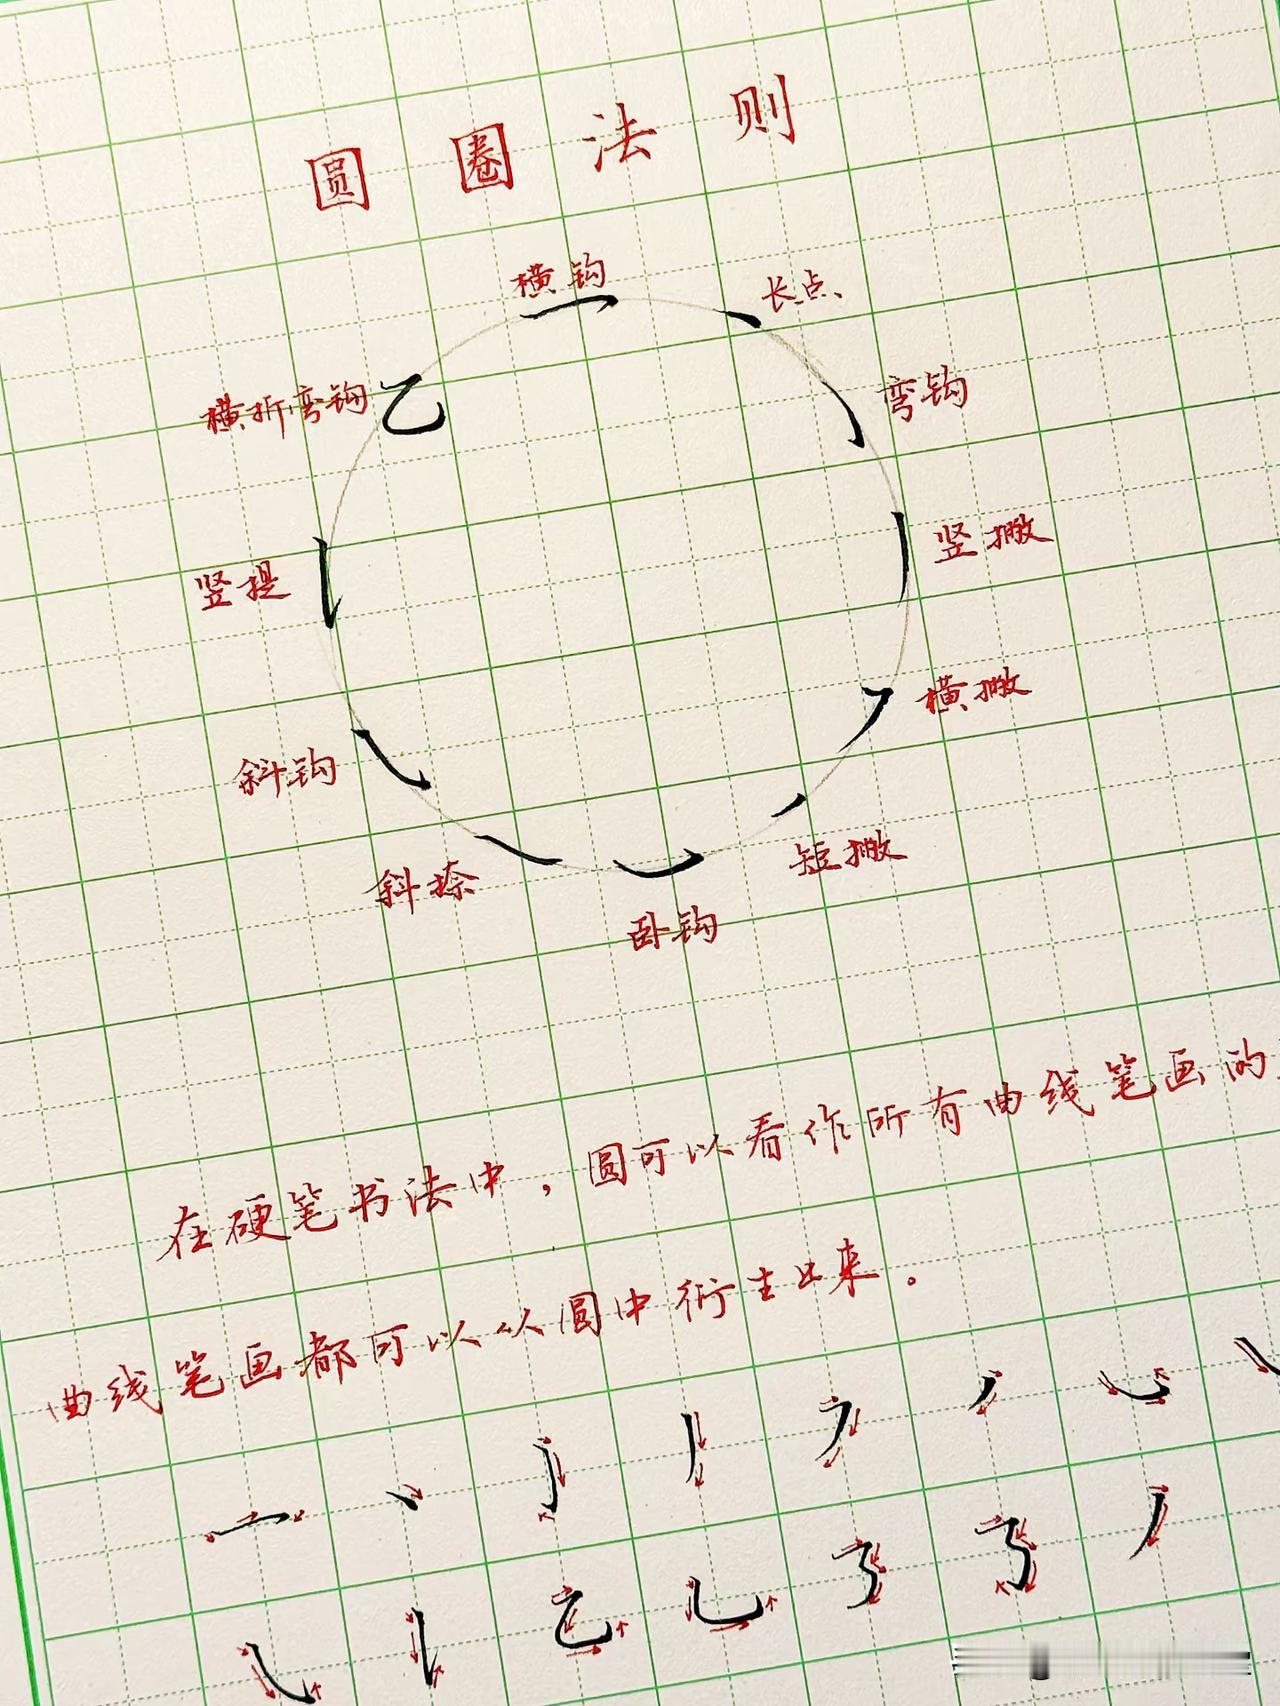 圆圈法则
横钩
长点
弯钩
竖撇
横撇
短撇
卧钩
斜捺
斜钩
竖提
横折弯钩
在硬笔书法中，圆可以看作所有曲线笔画的
曲线笔画都可以从圆中衍生出来。